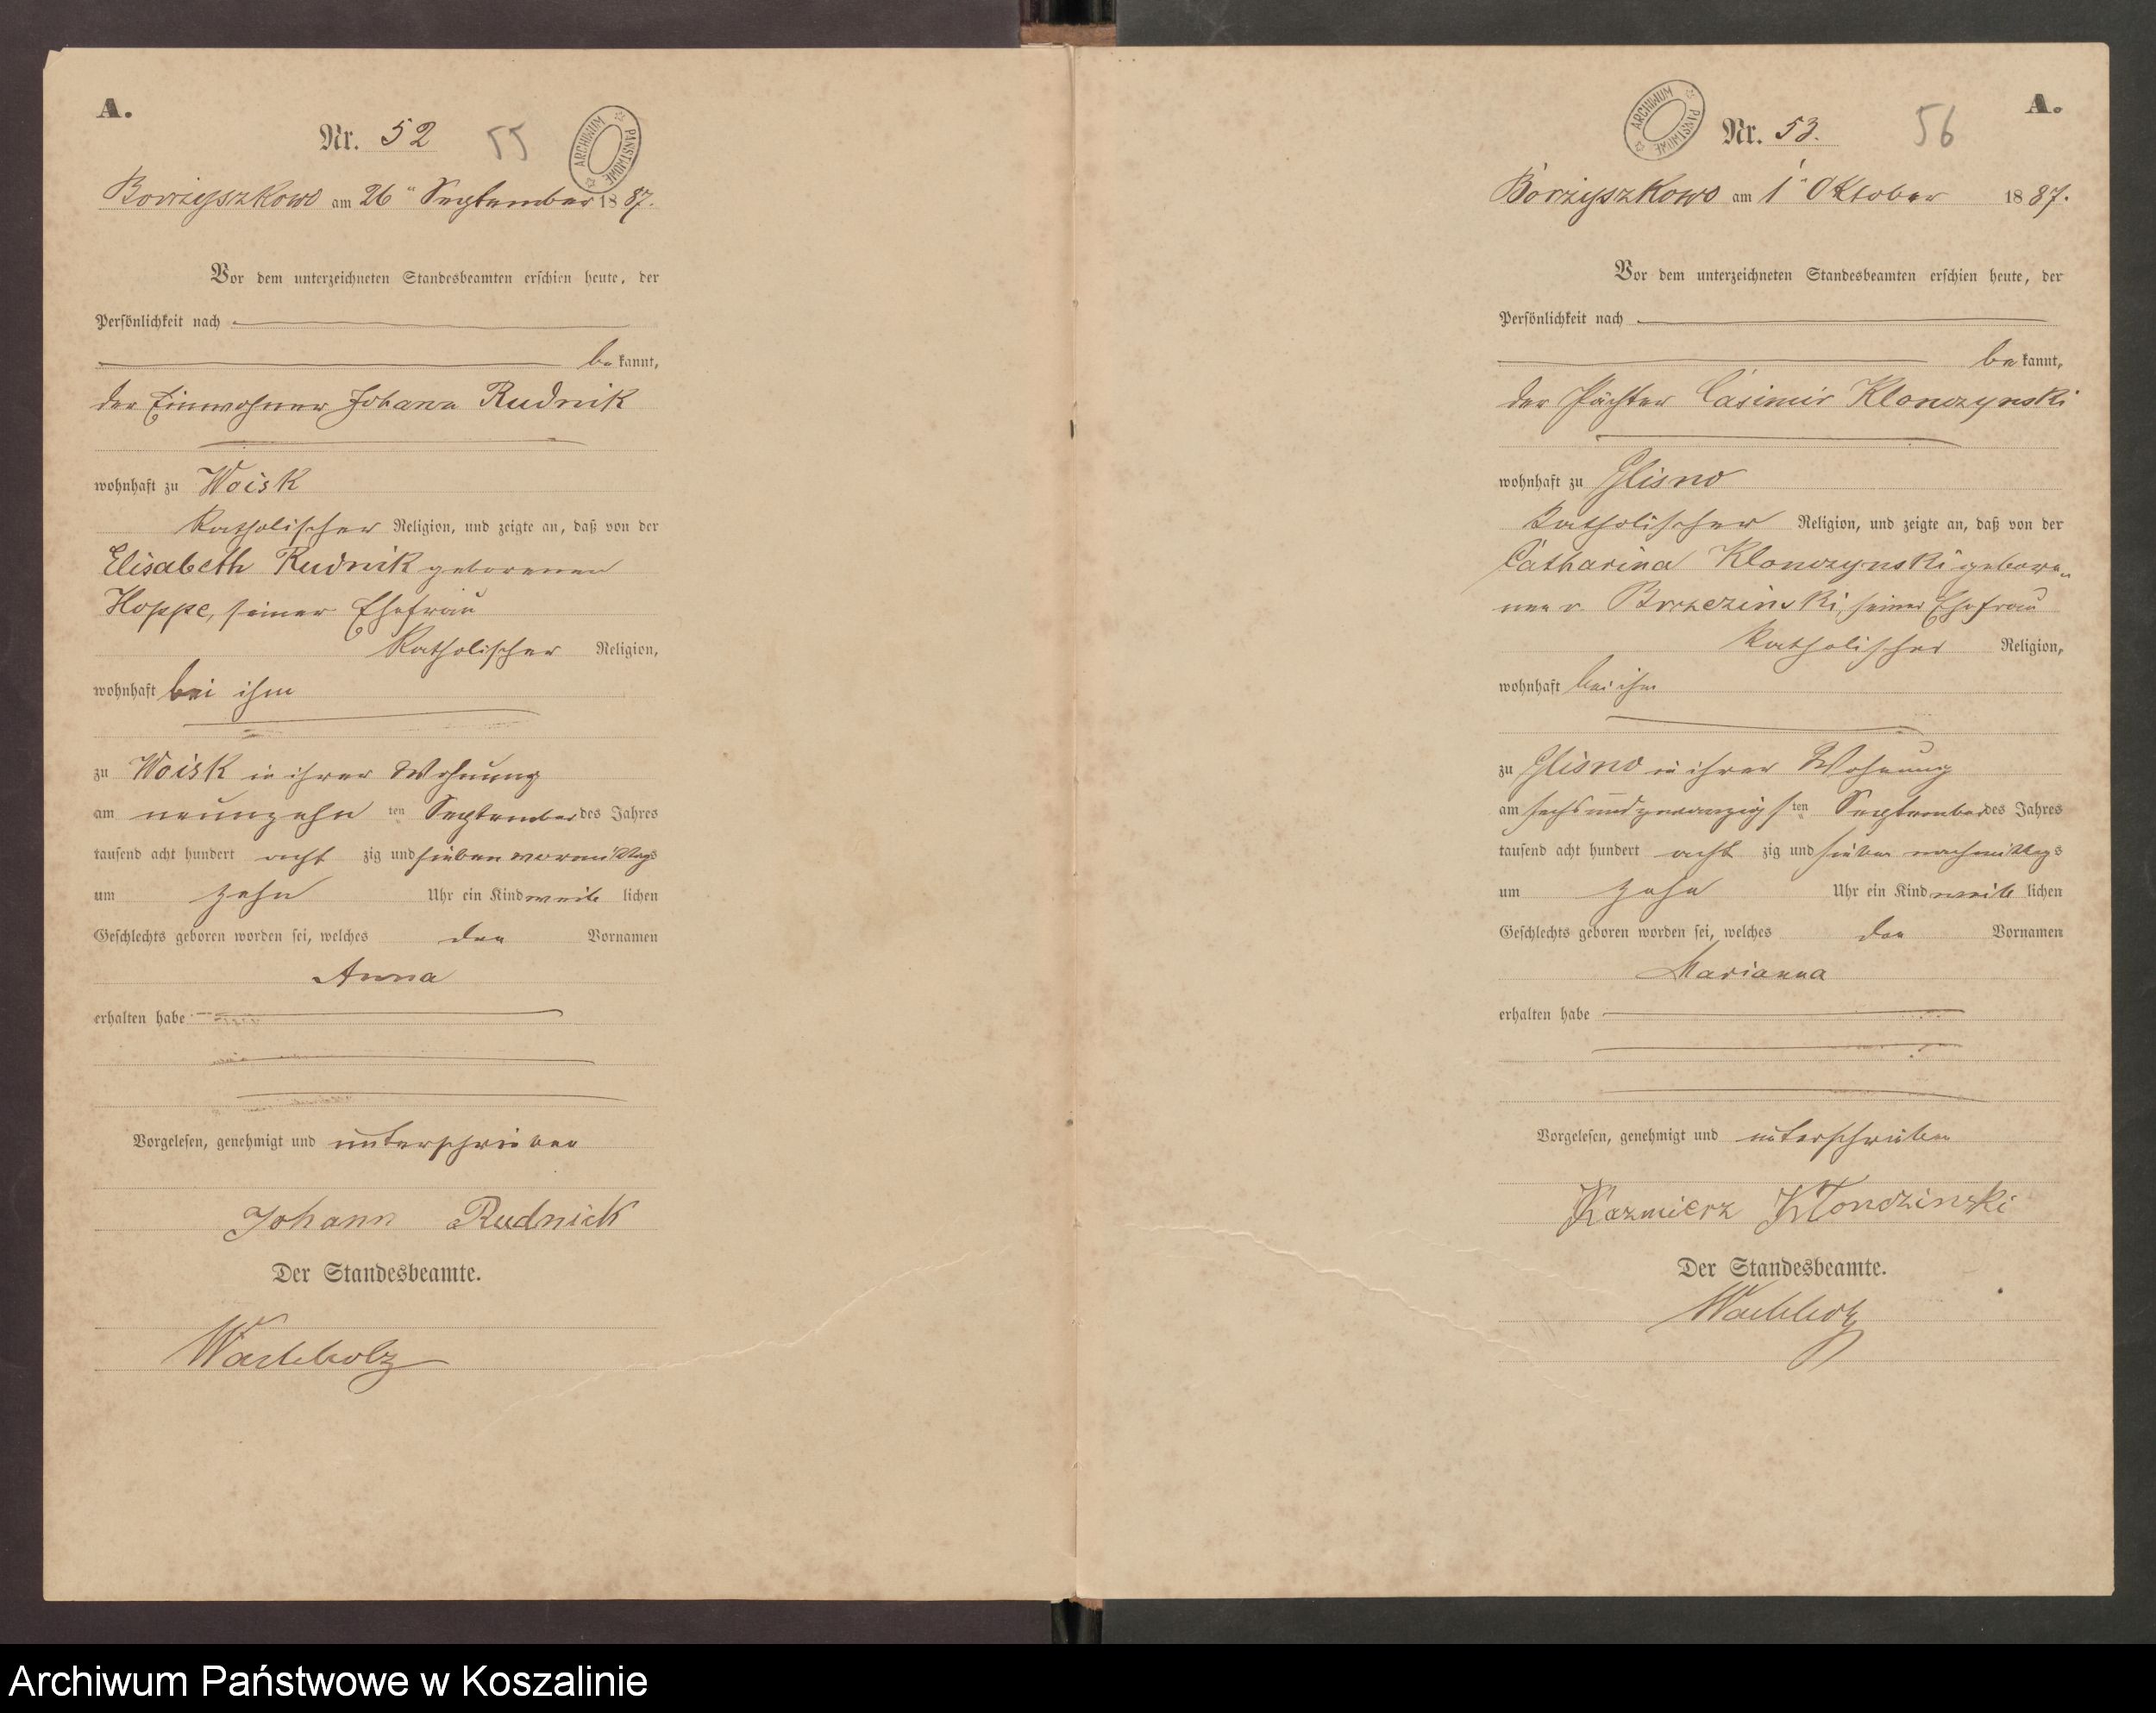 A.
Nr. 52 55
ARCHIWUM PAŃSTWOWE
Borzyszkowo am 26ten September 1887.
Vor dem unterzeichneten Standesbeamten erschien heute, der
Persönlichkeit nach
bekannt,
der Einwohner Johann Rudnik
wohnhaft zu Woisk
katholischer Religion, und zeigte an, daß von der
Elisabeth Rudnik geborenen
Hoppe, seiner Ehefrau
katholischer Religion,
wohnhaft bei ihm
zu Woisk in ihrer Wohnung
am neunzehn ten September des Jahres
tausend acht hundert acht zig und sieben vormittags
um zehn Uhr ein Kind weib lichen
Geschlechts geboren worden sei, welches den Vornamen
Anna
erhalten habe
Vorgelesen, genehmigt und unterschrieben
Johann Rudnick
Der Standesbeamte.
Wachholz
A.
ARCHIWUM PAŃSTWOWE
Nr. 53. 56
Borzyszkowo am 1ten Oktober 1887.
Vor dem unterzeichneten Standesbeamten erschien heute, der
Persönlichkeit nach
bekannt,
der Pächter Casimir Klonczynski
wohnhaft zu Glisno
katholischer Religion, und zeigte an, daß von der
Catharina Klonczynski gebore-
nen v. Brzezinski, seiner Ehefrau
katholischer Religion,
wohnhaft bei ihm
zu Glisno in ihrer Wohnung
am sechsundzwanzigsten September des Jahres
tausend acht hundert acht zig und sieben nachmittags
um zehn Uhr ein Kind weib lichen
Geschlechts geboren worden sei, welches den Vornamen
Marianna
erhalten habe
Vorgelesen, genehmigt und unterschrieben
Kazmierz Kłondzinski
Der Standesbeamte.
Wachholz
Archiwum Państwowe w Koszalinie